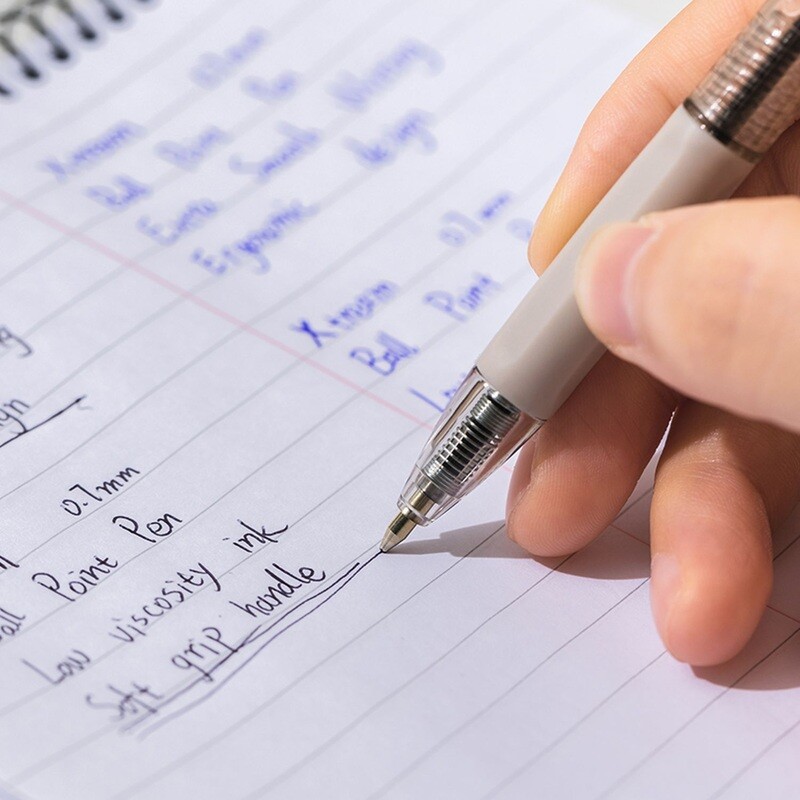 Xtream 0.7mm
Ball Point Pen
Extra Smooth Writing
Ergonomic design
Xtream 0.7mm
Ball Point
0.7mm
Point Pen
Low viscosity ink
Soft grip handle